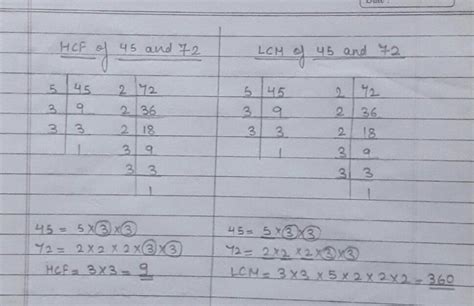 HCF of 45 and 72
5 | 45
3 | 9
3 | 3
1
2 | 72
2 | 36
2 | 18
3 | 9
3 | 3
1
45 = 5 × 3 × 3
72 = 2 × 2 × 2 × 3 × 3
HCF = 3 × 3 = 9
LCM of 45 and 72
5 | 45
3 | 9
3 | 3
1
2 | 72
2 | 36
2 | 18
3 | 9
3 | 3
1
45 = 5 × 3 × 3
72 = 2 × 2 × 2 × 3 × 3
LCM = 3 × 3 × 5 × 2 × 2 × 2 = 360